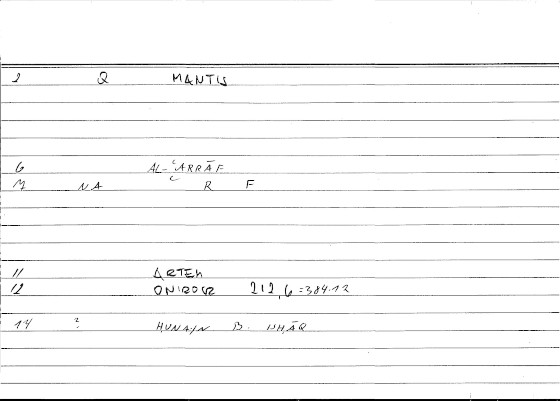 1 Q MANTIS
6 AL-ʿARRĀF
M NA R F
11 ARTEM
12 ONIROCR 212,6 = 384.12
14 ? ḤUNAYN B. ISḤĀQ